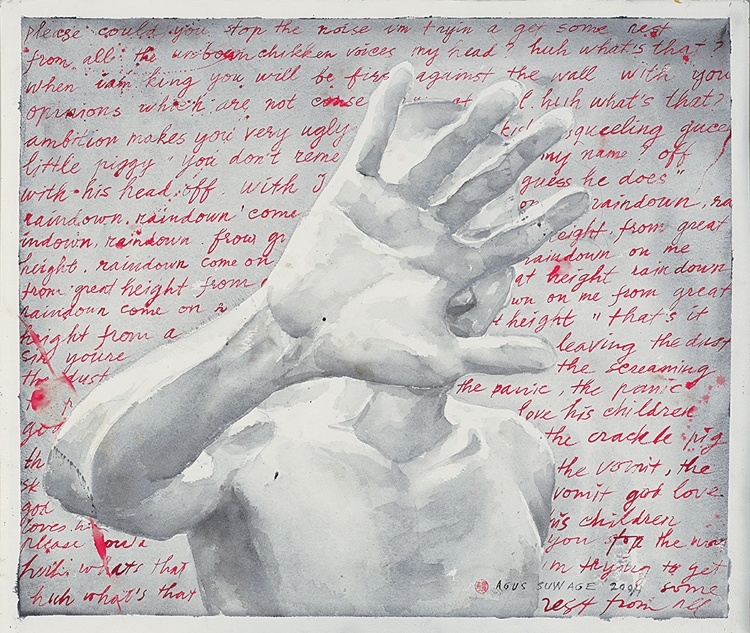 please could you stop the noise im tryin a get some rest
from all the unbown chikken voices my head" huh what's that?
when iam king you will be first against the wall with you
opinions which are not conse at l. huh what's that?
ambition makes you very ugly kis squeeling guce
little piggy "you don't reme my name? off
with his head off. with I guess he does"
raindown, raindown' come on raindown, ra
indown, raindown. from gr height. from great
height. raindown come on raindown on me
from great height from at height rain down
raindown come on wn on me from great
height from a height" that's it
Sir, youre leaving the dust
the dust the screaming
the panic, the panic
god love his children
th the crackle pig
sk the vomit, the
god vomit god love
loves hi his children
please could you stop the noise
huh. whats that im trying to get
huh what's that some
AGUS SUWAGE 2004
rest from all